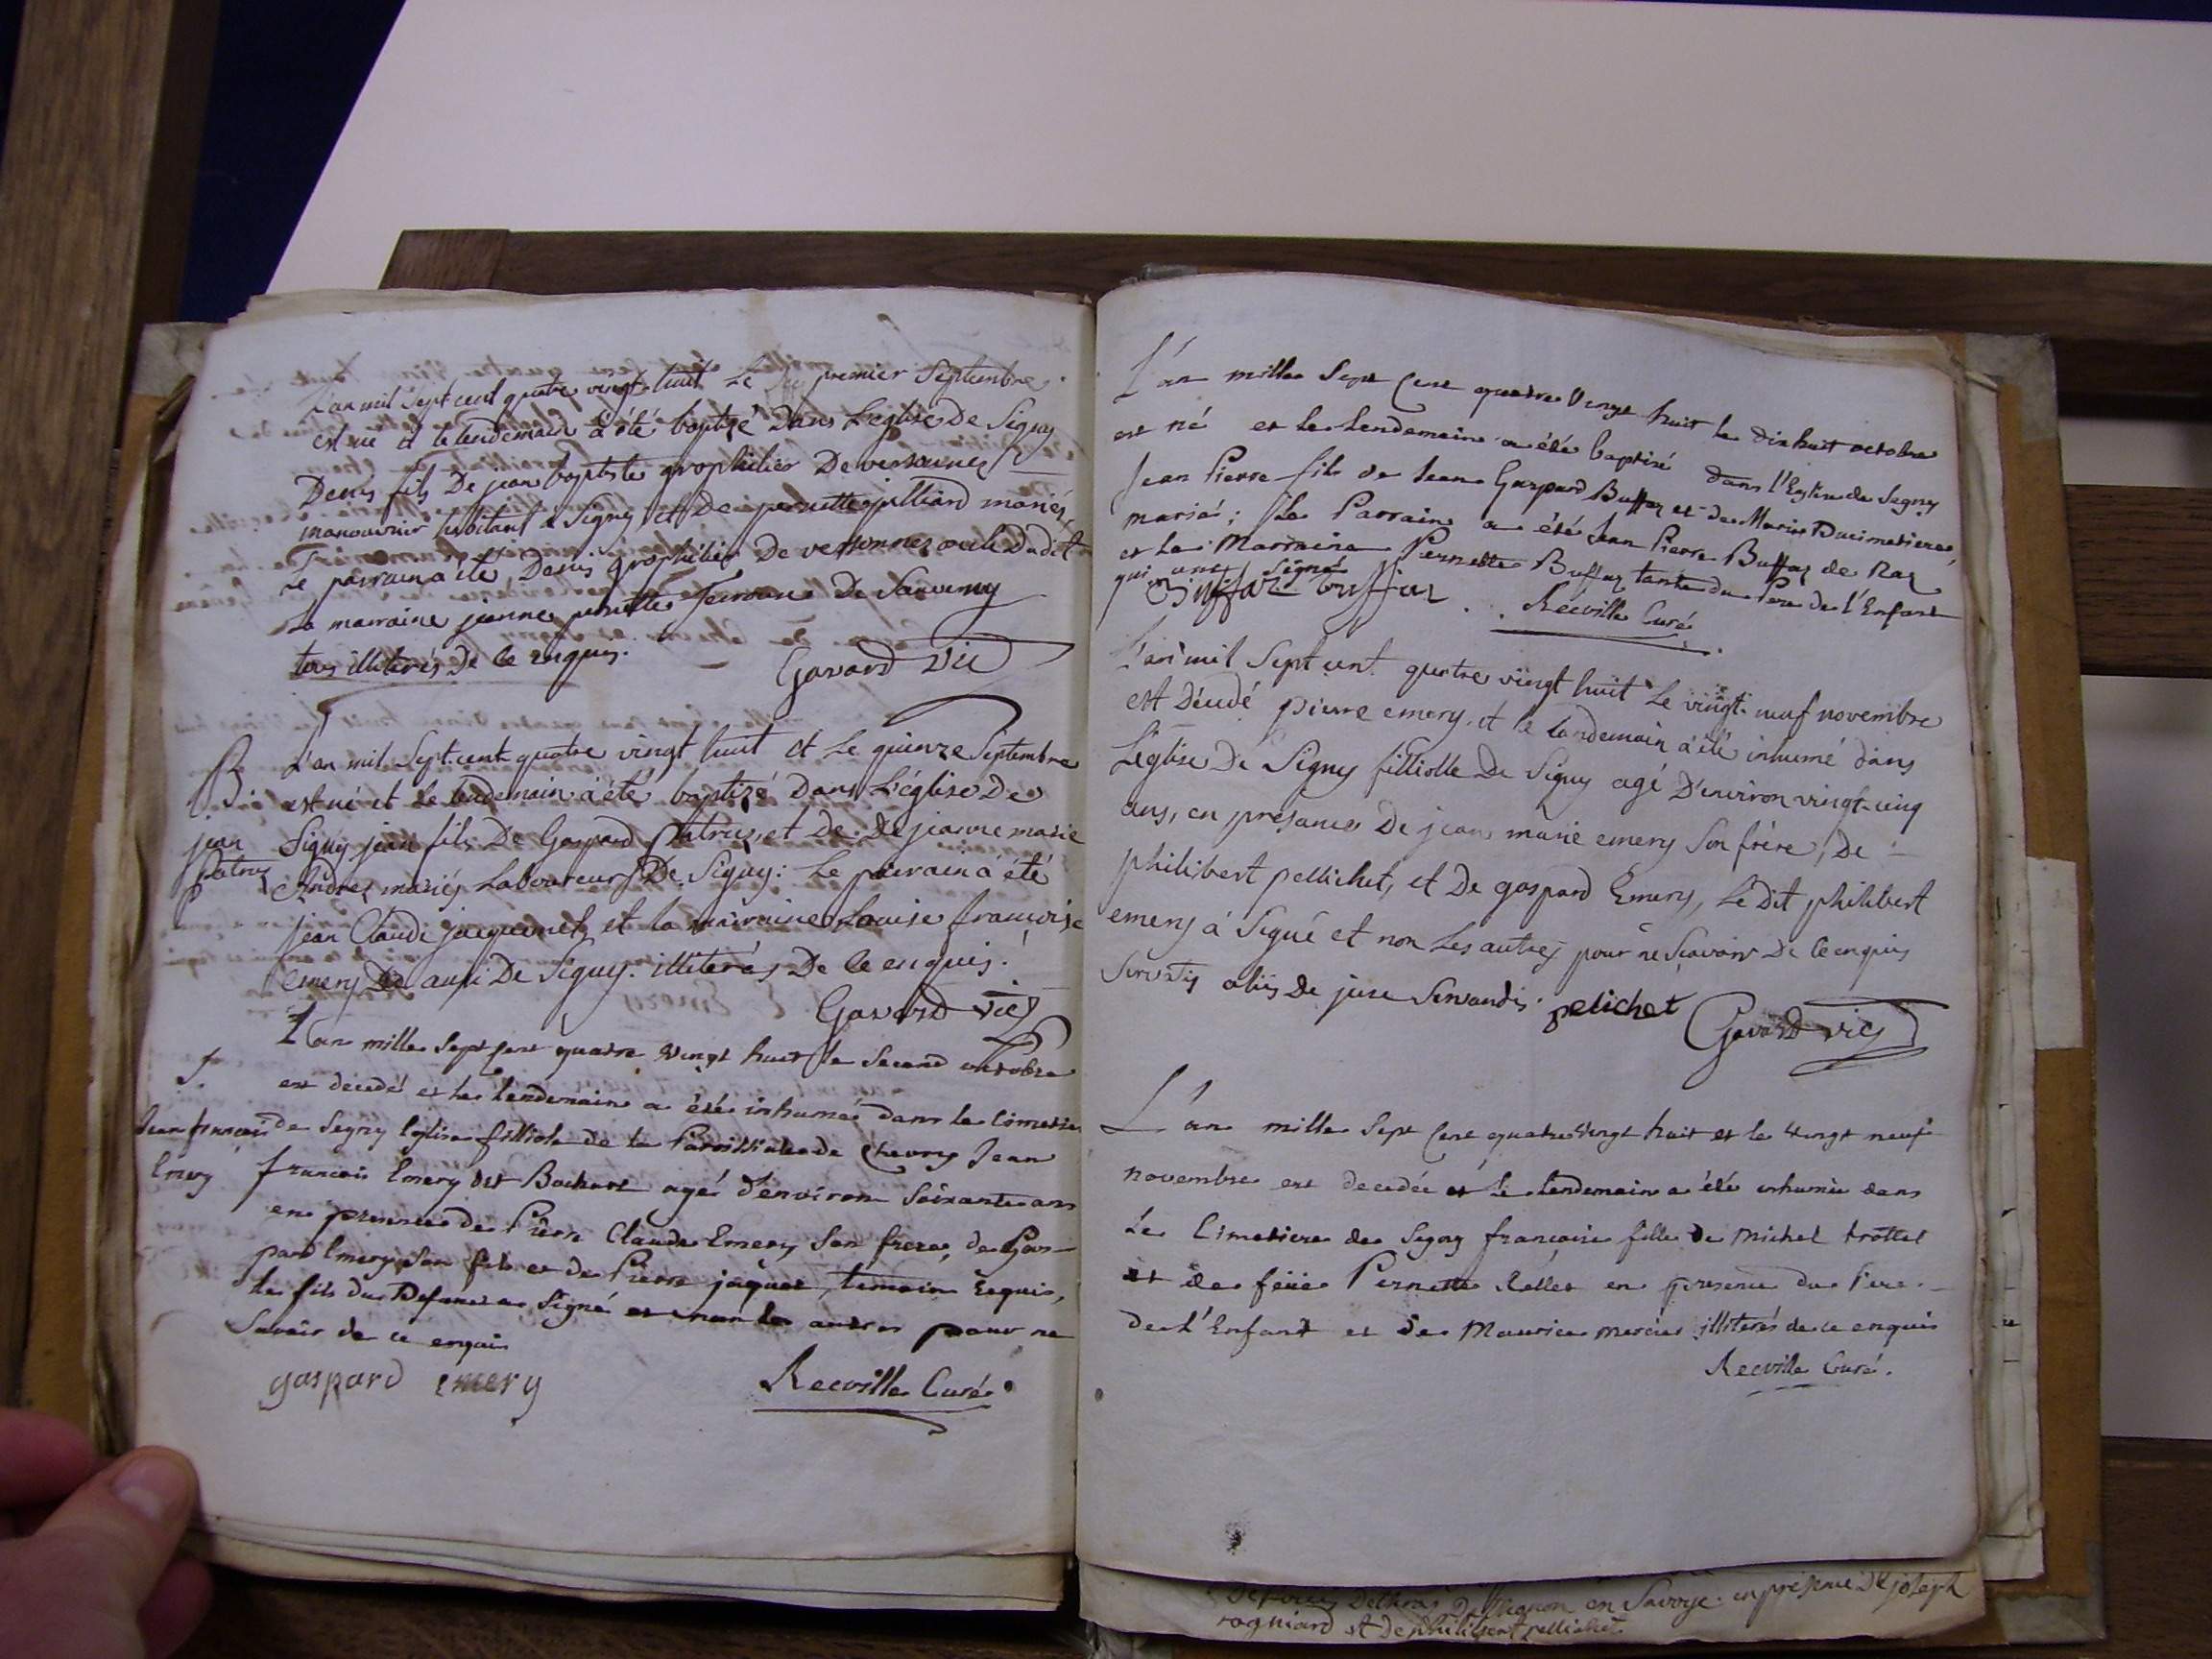 L'an mil Sept cent quatre vingt-huit Le premier Septembre
est né et le lendemain à été baptizé Dans L'eglise De Signy
Denis fils De jean baptiste grophilier De versonnex
manouvrier habitant à Signy et De pernette julliard mariés
Le parrain a été Denis grophilier De versonnex oncle Dudit
La marraine jeanne pernette De Sauverny
tous illiterés De ce enquis.
Gavard vic
L'an mil Sept-cent quatre vingt huit et Le quinze Septembre
B. est né et Le lendemain à été baptizé Dans L'église De
jean Signy jean fils De Gaspard patruz, et De De jeanne marie
patruz Andrez mariés Laboureurs De Signy: Le parrain à été
jean Claude jacquemet, et la marraine Louise françoise
emery De aussi De Signy. illiterés De ce enquis.
Gavard vic
L'an mille Sept Cent quatre Vingt huit le Second octobre
est décedé et le lendemain a été inhumé dans le Cimetiere
Jean francois de Segny Eglise filliole de la Paroissiale de Chevry Jean
Emery francois Emery dit Bochard agé d'environ Soixante ans
en presence de Pierre Claude Emery Son frere, de Gas-
pard Emery Son fils et de Pierre jaquet temoins Requis,
le fils du Defunt a Signé et non les autres pour ne
Savoir de ce enquis
gaspard emery Recville Curé
L'an mille Sept Cent quatre Vingt huit le dix huit octobre
est né et le lendemain a été baptisé dans l'Eglise de Segny
Jean Pierre fils de Jean Gaspard Buffaz et de Marie Ducimetiere
mariés; Le Parrain a été Jean Pierre Buffaz de Naz
et la Marraine Pernette Buffaz tante du Pere de l'Enfant
qui ont Signé
Buffaz buffaz Recville Curé
L'an mil Sept cent quatre vingt huit Le vingt-neuf novembre
est Décedé pierre emery, et le landemain à été inhumé dans
L'église De Signy filliolle De Signy agé D'environ vingt-cinq
ans, en présance De jean marie emery Son frère, De
philibert pellichet, et De gaspard Emery, Le Dit philibert
emery à Signé et non Les autres pour ne Sçavoir De ce enquis
Servatis aliis De jure Servandis. pelichet Gavard vic
L'an mille Sept Cent quatre Vingt huit et le Vingt neuf
novembre est decedée et le lendemain a été inhumée dans
Le Cimetiere de Segny françoise fille de Michel trottet
et de feüe Pernette Rollet en presence du Pere
de l'Enfant et de Maurice mercier illiterés de ce enquis
Recville Curé.
en Savoye. en présence De joseph
rogniard et De philibert pellichet